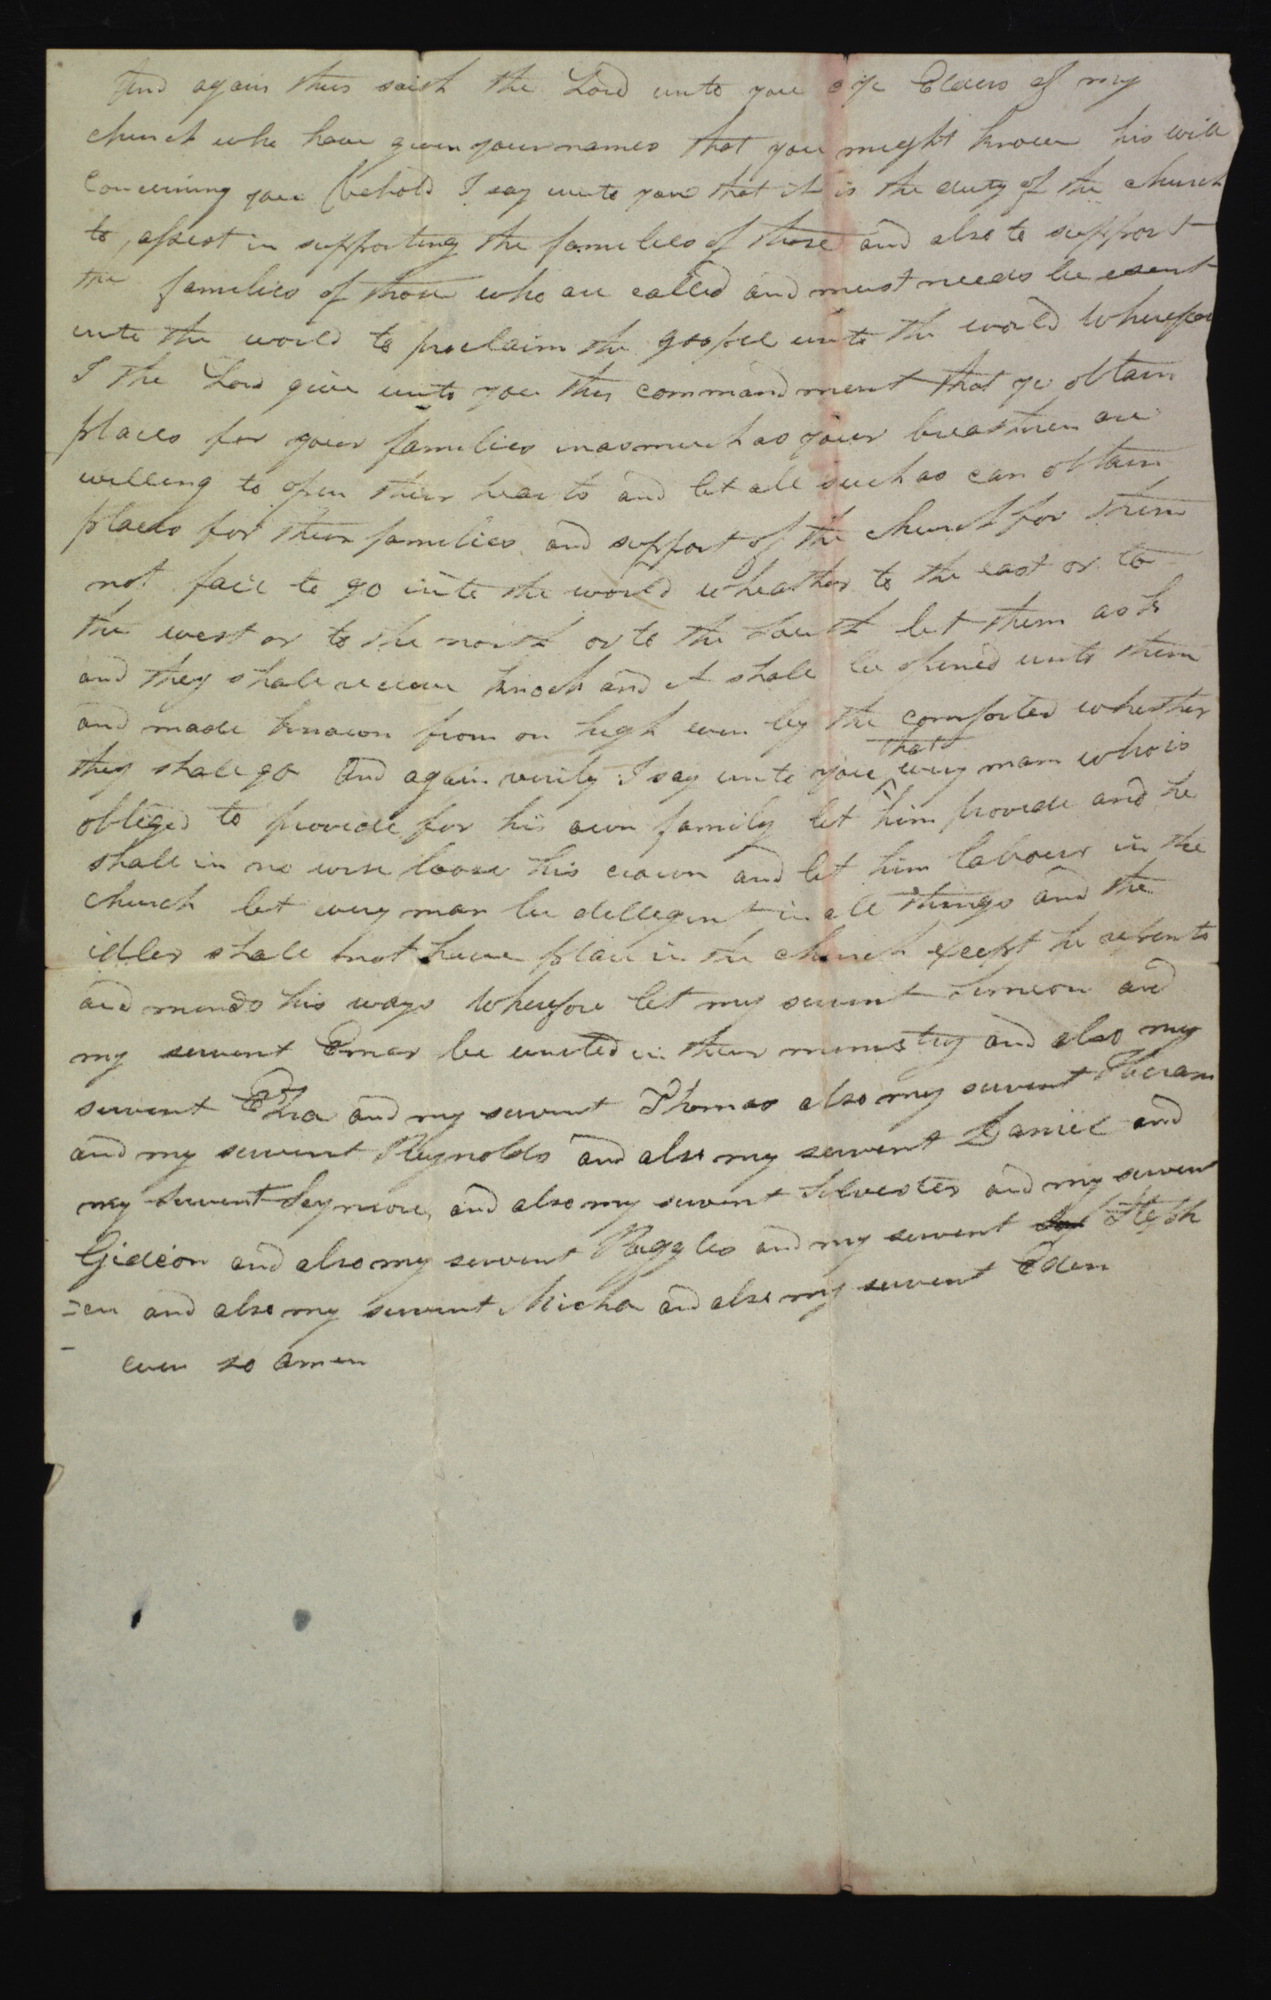 And again thus saith the Lord unto you o ye Elders of my
church who have given your names that you might know his will
concerning you (behold I say unto you that it is the duty of the church
to assist in supporting the families of those and also to support
the families of those who are called and must needs be sent
unto the world to proclaim the gospel unto the world Wherefore
I the Lord give unto you this commandment that ye obtain
places for your families inasmuch as your breathren are
willing to open their hearts and let all such as can obtain
places for their families and support of the church for them
not fail to go into the world wheather to the east or to
the west or to the north or to the south let them ask
and they shall receive knock and it shall be opened unto them
and made known from on high even by the comforter whether
they shall go And again verily I say unto you ^that every man who is
obliged to provide for his own family let him provide and he
shall in no wise loose his crown and let him labour in the
church let every man be dillegent in all things and the
idler shall not have place in the church except he repents
and mends his ways Wherefore let my servent Simeon and
my servent Emer be united in their ministry and also my
servent Ezra and my servent Thomas also my servent Hiram
and my servent Reynolds and also my servent Daniel and
my servent Seymour, and also my servent Silvester and my servent
Gideon and also my servent Ruggles and my servent Steph
=en and also my servent Micha and also my servent Eden
even so amen